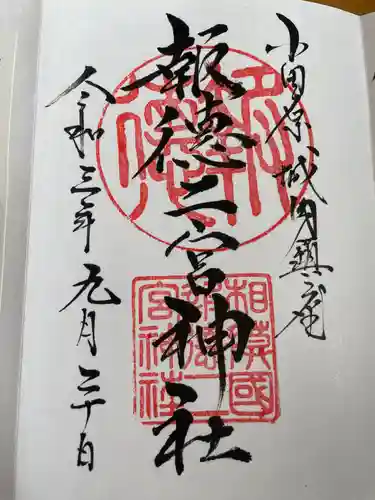 小田原城内鎮座
報徳二宮神社
令和三年九月二十日
報徳
相模國
報徳二
宮神社